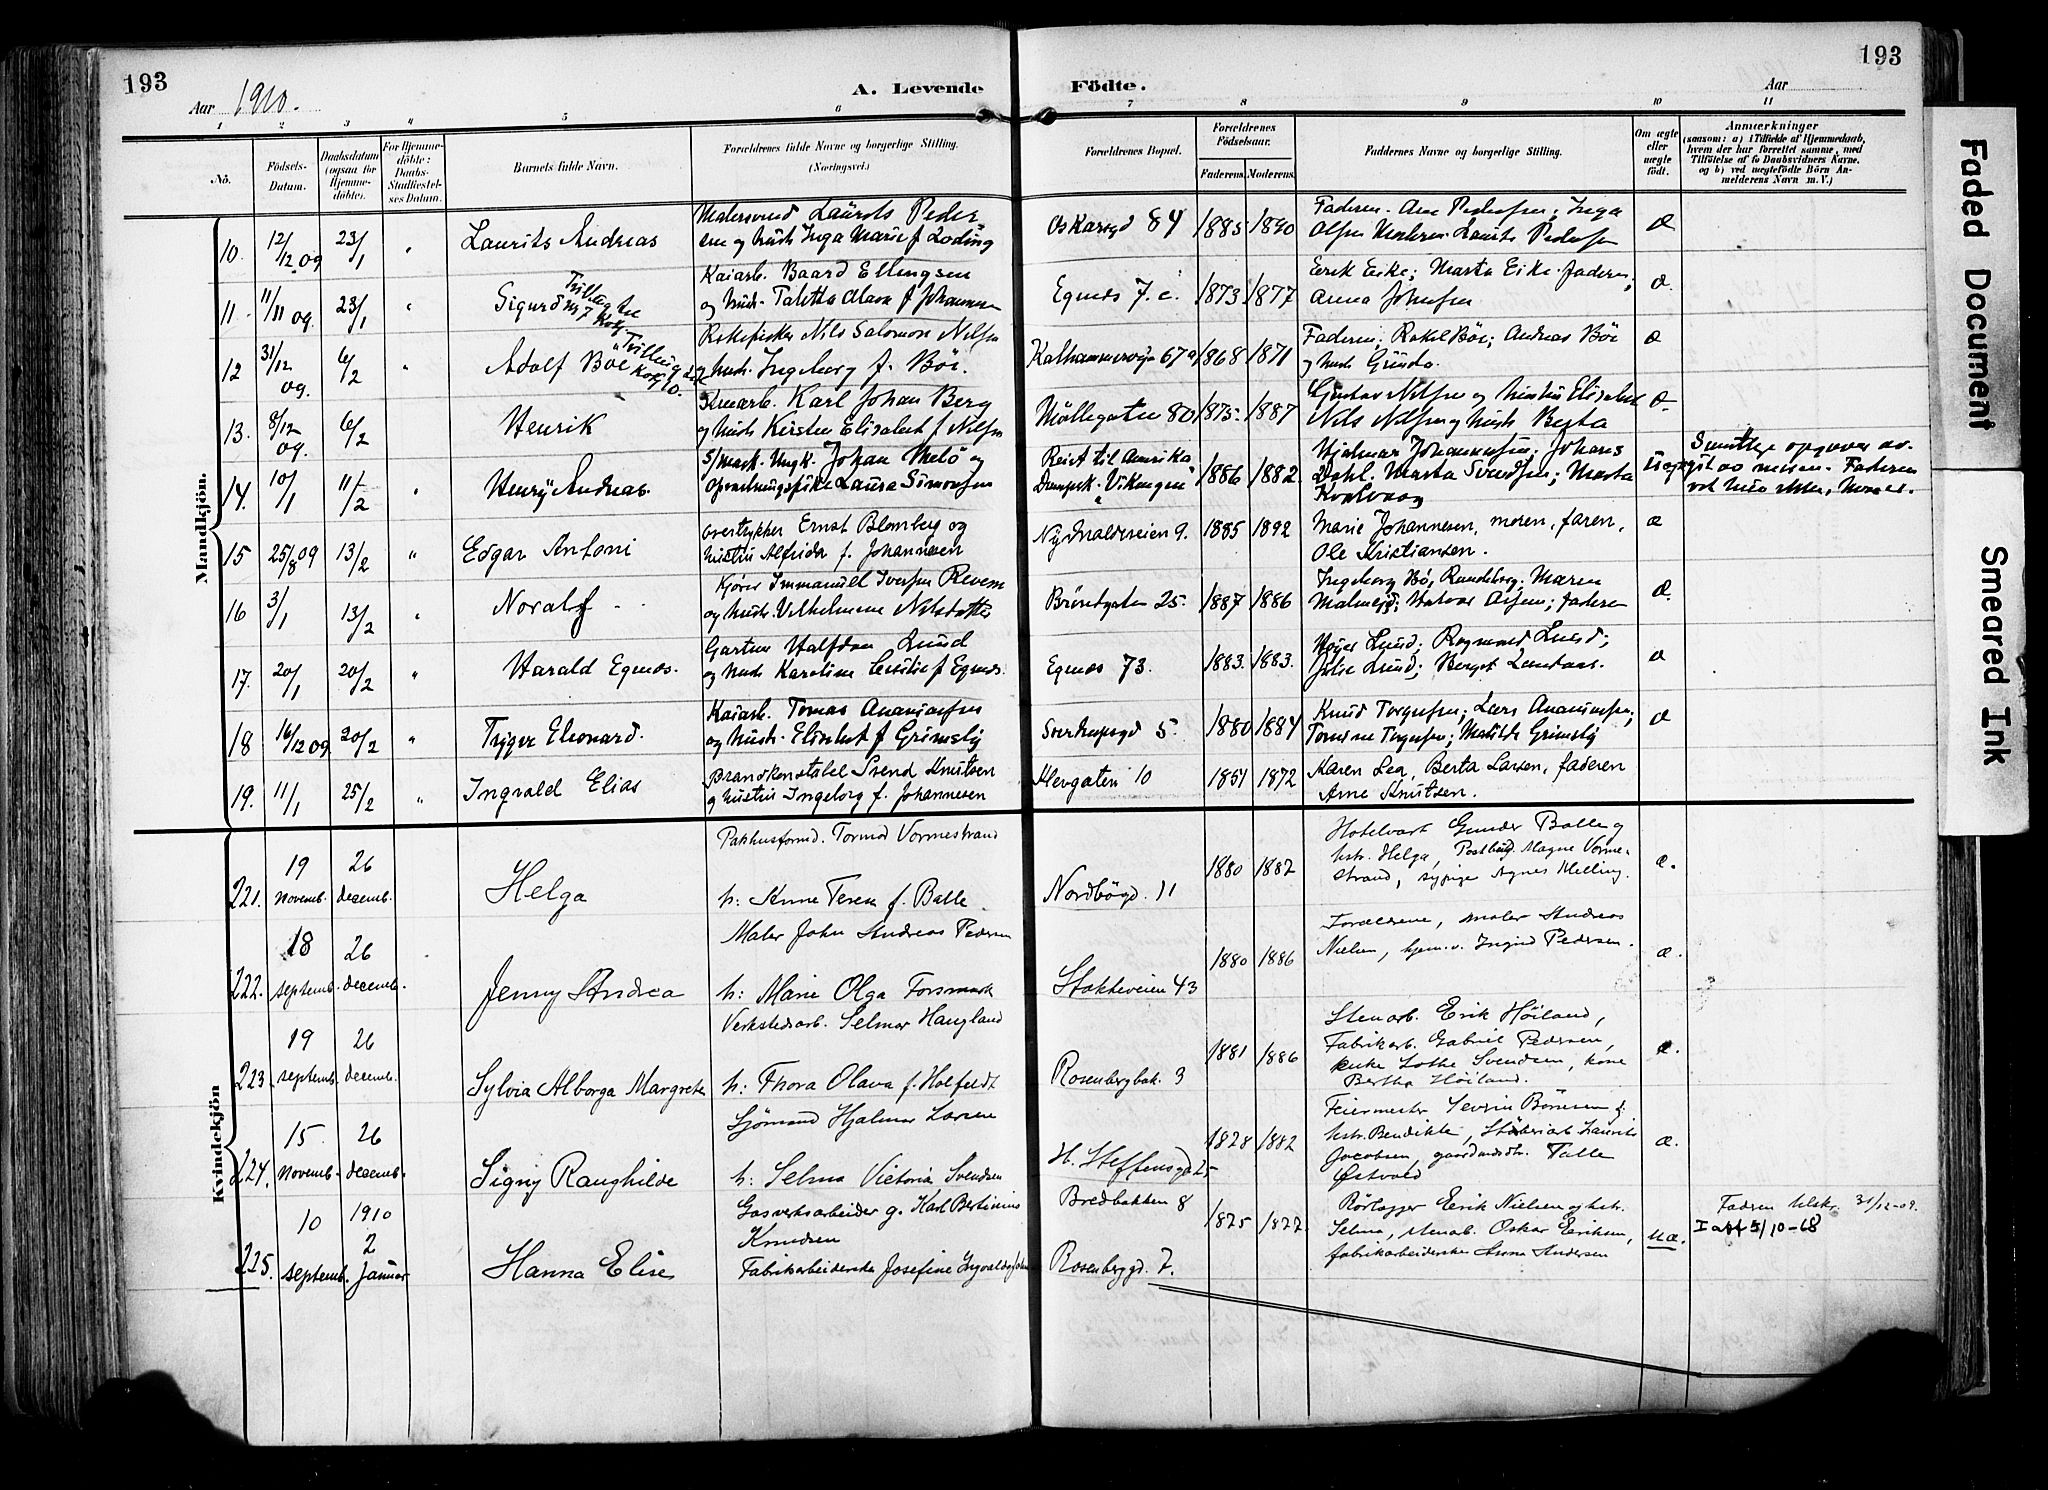 193
Aar 1910.
A. Levende
Födte.
Aar
193
1 2 3 4 5 6 7 8 9 10 11
No.
Födsels-
Datum.
Daabsdatum
(ogsaa for
Hjemme-
döbte).
For Hjemme-
döbte:
Daabs-
Stadfæstel-
ses Datum.
Barnets fulde Navn.
Forældrenes fulde Navne og borgerlige Stilling.
(Næringsvei.)
Forældrenes Bopæl.
Forældrenes
Födselsaar.
Faderens. Moderens.
Faddernes Navne og borgerlig Stilling.
Om ægte
eller
uægte
födt.
Anmærkninger
(saasom: a) i Tilfælde af Hjemmedaab,
hvem der har forrettet samme, med
Tilföielse af to Daabsvidners Navne.
og b) ved uægtefödte Börn An-
melderens Navn m. V.)
Mandkjön.
10. 12/12 09 23/1 " Laurits Andreas
Malersvend Laurits Peder
sen og hust. Inga Marie f. Loding
Oskarsgd 84 1885 1890
Faderen. Ane Pedersen; Inga
Olsen Moderen Laurits Pedersen
æ
11 11/11 09. 23/1 " Sigurd
Kaiarb. Baard Ellingsen
og hust. Taletta Olava f. Johannesen
Egenæs 7.c. 1873 1877
Erik Eike; Marta Eike. faderen;
Anna Johnsen
æ.
12 31/12 09. 6/2 " Adolf Böe
Nils Salomon Nilsen
hust. Ingeborg f. Böe.
Kalhammersvejen 67a 1868 1871
Faderen; Rakel Böe; Andreas Böe
og hust Gunda.
æ
13. 8/12 09. 6/2 " Henrik
Karl Johan Berg
og hust Kirsten Elisabet f. Nilsen
Möllegaten 80 1875. 1887
Gustav Nilsen og hustru Elisabet
Nils Nilsen og hust Berta
æ.
14. 10/1 11/2 " Henry Andreas.
Johan Melö og
Laura Simonsen
Reist til Amerika
Dampsk. "Vikingen" 1886 1882.
Hjalmar Johannesen; Johans
Dahl. Marta Svendsen; Marta
Kvalvaag
Samtlige opgaver av-
git av moren. Faderen
15 25/8 09 13/2 " Edgar Antoni
overtrykker Ernst Blomberg og
hustru Alfrida f. Johannesen
9. 1885 1892
Marie Johannesen, moren, faren,
Ole Kristiansen.
æ
16 3/1 13/2 " Noralf
Kjörer Immanuel Iversen Revem
og hust. Vilhelmine Nilsdatter
Bröndgaten 25. 1887 1886
Ingeborg Bö, Randeberg. Maren
faderen
æ.
17. 20/1 20/2 " Harald Egenæs.
Gartner Halfdan Lund
og hust Karoline Cecilie f Egenæs.
Egenæs 73. 1883. 1883.
Lund; Ragnvald Lund;
Lund; Berget
æ
18 16/12 09 20/2 " Tryger Eleonard.
Kaiarb. Tomas Ananiassen
og hust. Elisabet f Grimsby
Sverdrupsgd 5. 1880 1884
Knud Torgersen; Lars Ananiassen;
Tomine Torgersen; Matilde Grimsby
æ
19. 11/1 25/2 " Ingvald Elias
Brandkonstabel Svend Knutsen
og hustru Ingeborg f. Johannesen
Klevgaten 10 1854 1872
Karen Lea, Berta Larsen, faderen
Arne Knutsen.
Kvindekjön
221. 19 Novemb. 26 decemb. Helga
Pakhusformd. Tormod Vormestrand
h: Anne Teresa f. Balle.
Nordbögd. 11 1880 1882
Hotelvært Gunder Balle og
hstr. Helga, Postbud. Magne Vorme-
strand, sypige Agnes Melling.
æ.
222. 18 septemb. 26 decemb. Jenny Andrea
Maler John Andreas Pedersen
h: Marie Olga Forsmark
Stokkeveien 43 1880 1886
Forældrene, maler Andreas
Nielsen, hjem. v. Ingrid Pedersen.
æ.
223 19 septemb. 26 decemb. Sylvia Alborga Margrete
Verkstedsarb. Selmer Haugland
h: Thora Olava f. Holfeldt
Rosenbergbak. 3 1881 1886
Stenarb. Erik Höiland,
Fabrikarb. Gabriel Pedersen,
enke Lothe Svendsen, kone
Bertha Höiland.
æ.
224. 15. Novemb. 26 decemb. Signy Raughilde
Sjömand Hjalmar Larsen
h: Selma Victoria Svendsen
H. Steffensgd 25 1828 1882
Feiermester Severin Börresen &
hstr. Bendikte, Laurits
Jacobsen, gaardmdstr. Talle
Østvold
æ.
225. 10 septemb. 1910 2 Januar Hanna Elise
Gasverksarbeider g. Karl Bertinius
Knudsen
Fabrikarbeiderske Josefine
Bredbakken 8 1875 1877.
Rosenberggd. 7.
Rörlægger Erik Nielsen og hstr.
Selma, Oskar Eriksen,
fabrikarbeiderske Anna Andersen
u.æ.
Faderen tilskr. 31/12-09.
10-68
Faded Document
Smeared Ink